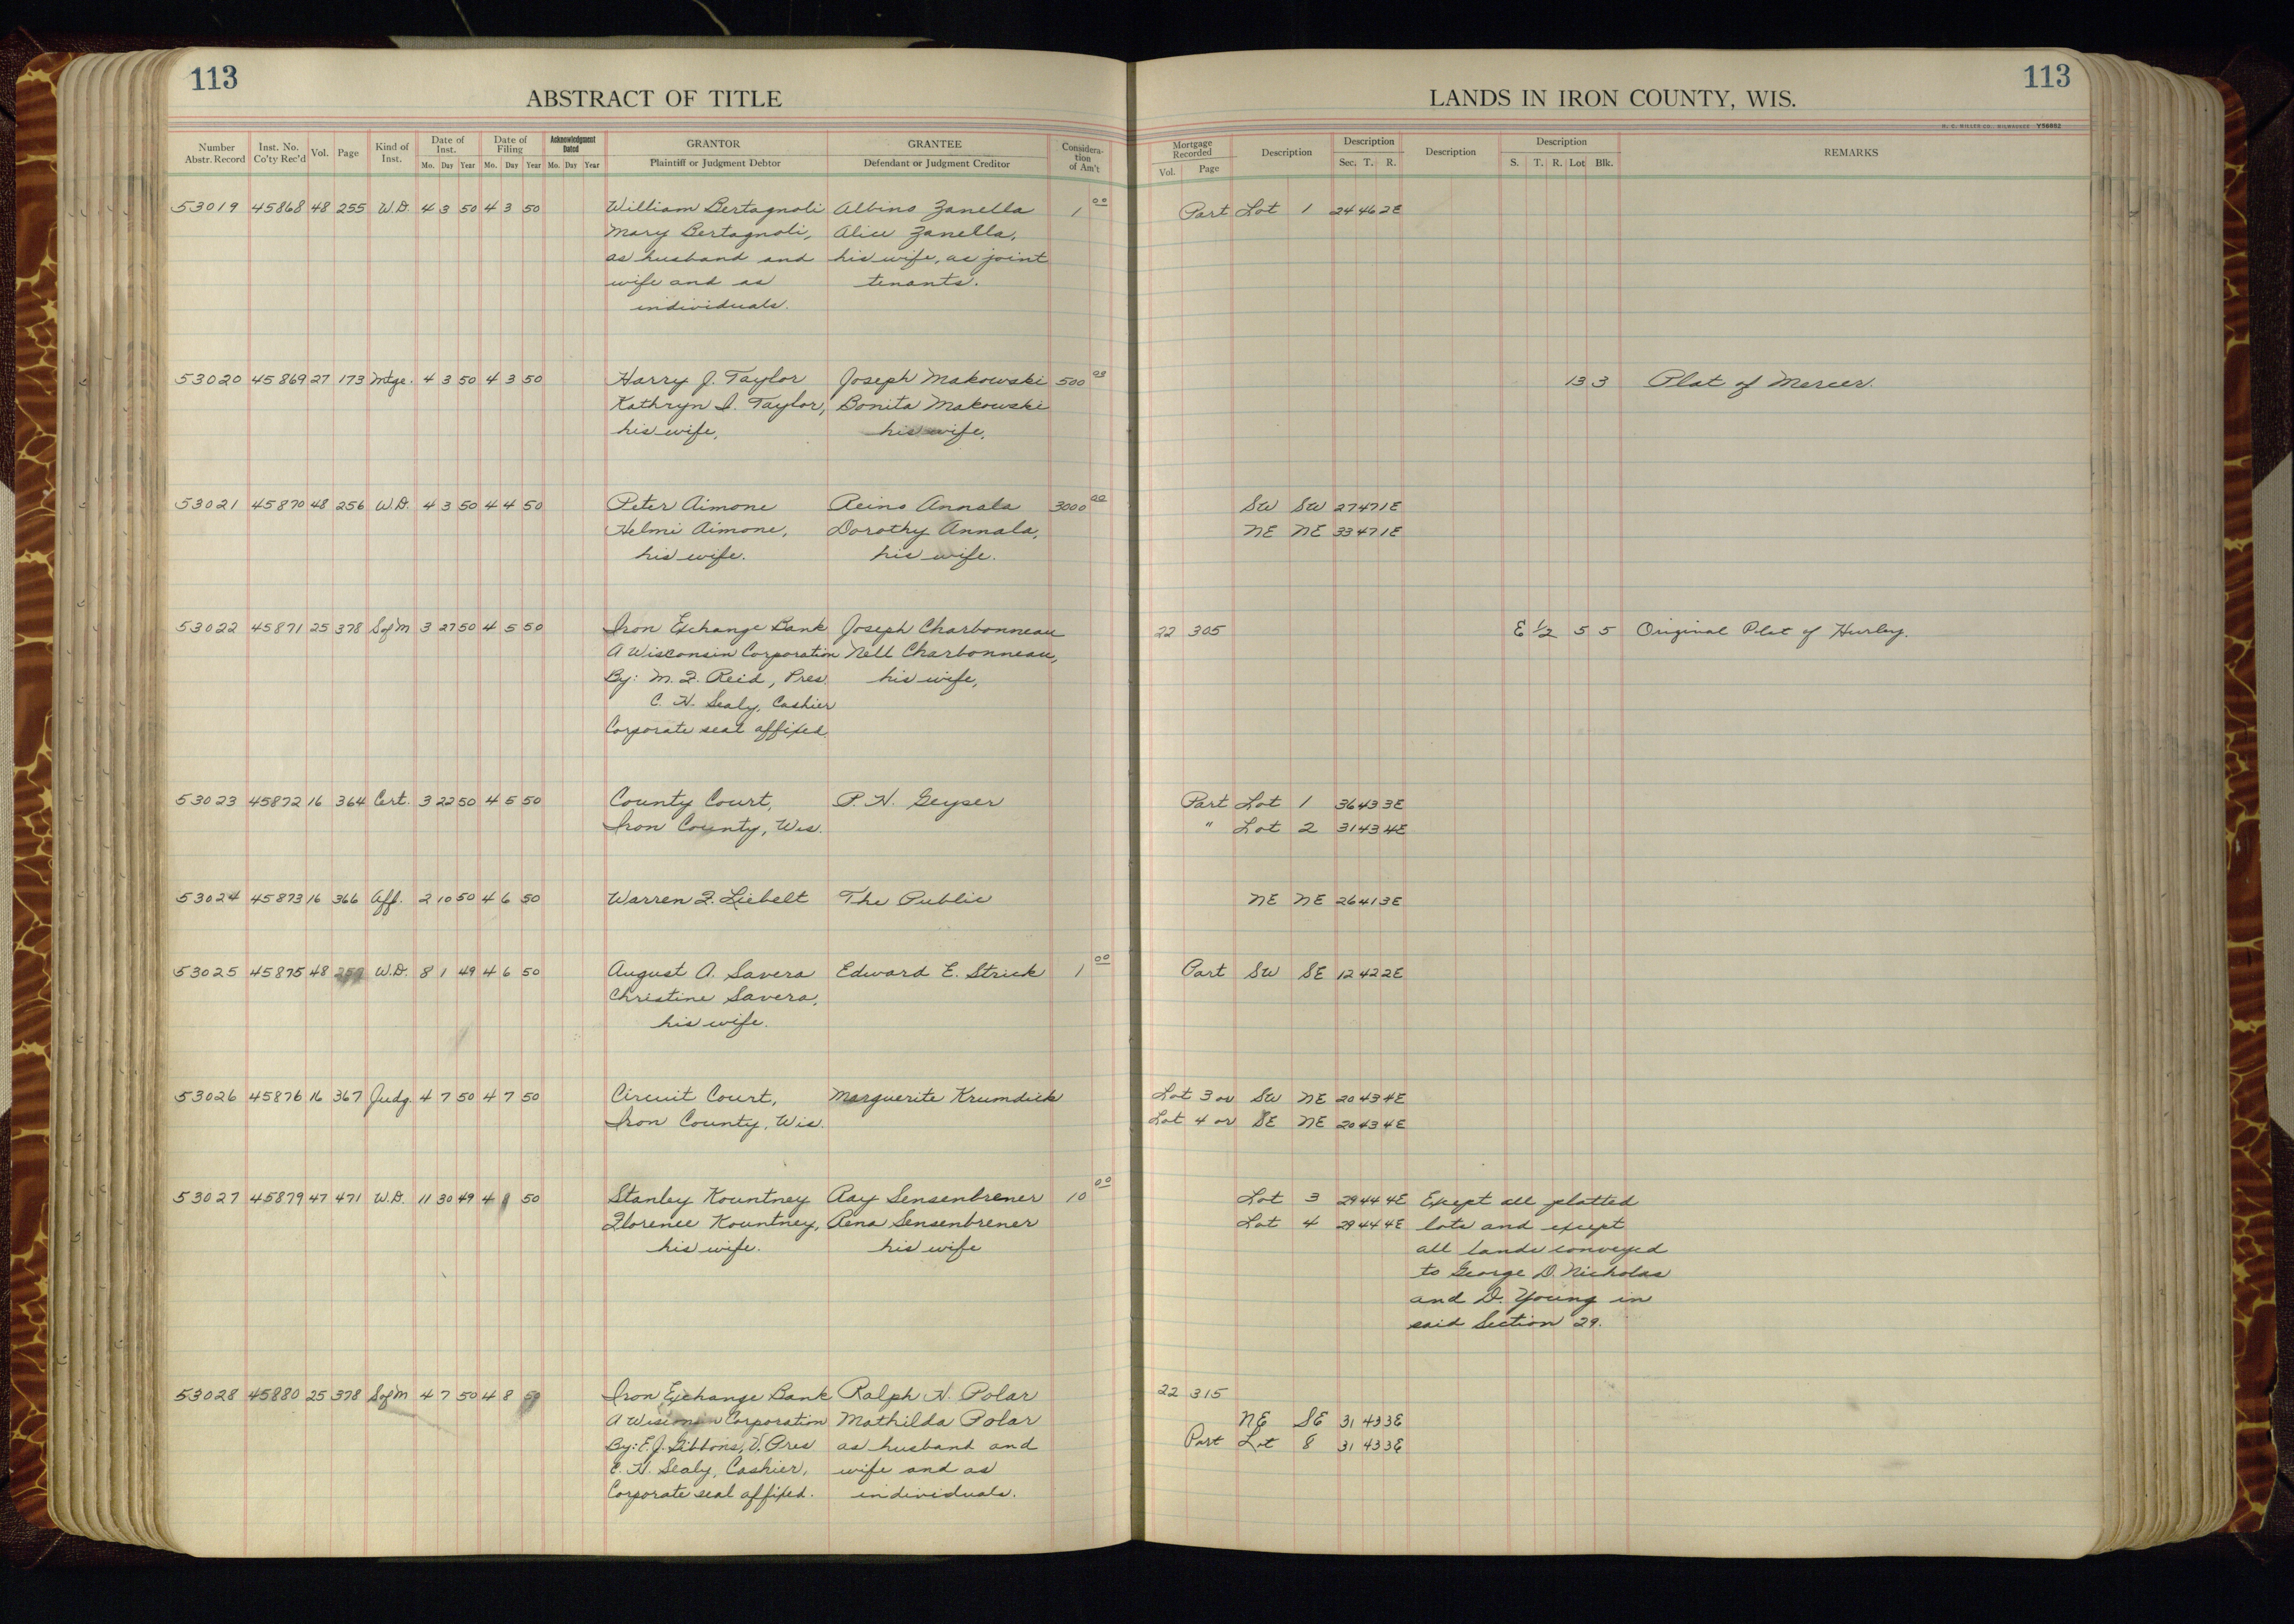 113
ABSTRACT OF TITLE
Number Abstr. Record Inst. No. Co'ty Rec'd Vol. Page Kind of Inst. Date of Inst. Mo. Day Year Date of Filing Mo. Day Year Acknowledgment Dated Mo. Day Year GRANTOR Plaintiff or Judgment Debtor GRANTEE Defendant or Judgment Creditor Considera-tion of Am't
53019 45868 48 255 W.D. 4 3 50 4 3 50 William Bertagnoli Albino Zanella 1 00
Mary Bertagnoli, Alice Zanella,
as husband and his wife, as joint
wife and as tenants.
individuals.
53020 45869 27 173 Mtge. 4 3 50 4 3 50 Harry J. Taylor Joseph Makowski 500 00
Kathryn I. Taylor, Bonita Makowski
his wife, his wife,
53021 45870 48 256 W.D. 4 3 50 4 4 50 Peter Aimone Reino Annala 3000 00
Helmi Aimone, Dorothy Annala,
his wife. his wife.
53022 45871 25 378 SofM 3 27 50 4 5 50 Iron Exchange Bank Joseph Charbonneau
A Wisconsin Corporation Nell Charbonneau,
By: M. F. Reid, Pres. his wife,
C. H. Sealy, Cashier
Corporate seal affixed.
53023 45872 16 364 Cert. 3 22 50 4 5 50 County Court, P. H. Geyser
Iron County, Wis.
53024 45873 16 366 Aff. 2 10 50 4 6 50 Warren F. Liebelt The Public
53025 45875 48 W.D. 8 1 49 4 6 50 August A. Savera Edward E. Strick 1 00
Christine Savera,
his wife.
53026 45876 16 367 Judg. 4 7 50 4 7 50 Circuit Court, Marguerite Krumdick
Iron County, Wis.
53027 45879 47 471 W.D. 11 30 49 4 50 Stanley Kountney Ray Sensenbrener 10 00
Florence Kountney, Rena Sensenbrener
his wife. his wife
53028 45880 25 378 SofM 4 7 50 4 8 50 Iron Exchange Bank Ralph H. Polar
A Wisconsin Corporation Mathilda Polar
By: E. J. Gibbons, V. Pres as husband and
C. H. Sealy, Cashier, wife and as
Corporate seal affixed. individuals.
113
LANDS IN IRON COUNTY, WIS.
H. C. MILLER CO., MILWAUKEE V56862
Mortgage Recorded Vol. Page Description Description Sec. T. R. Description Description S. T. R. Lot Blk. REMARKS
Part Lot 1 24 46 2E
13 3 Plat of Mercer.
SW SW 27 47 1E
NE NE 33 47 1E
22 305 E 1/2 5 5 Original Plat of Hurley.
Part Lot 1 36 43 3E
" Lot 2 31 43 4E
NE NE 26 41 3E
Part SW SE 12 42 2E
Lot 3 or SW NE 20 43 4E
Lot 4 or SE NE 20 43 4E
Lot 3 29 44 4E Except all platted
Lot 4 29 44 4E lots and except
all lands conveyed
to George D. Nicholas
and D. Young in
said Section 29.
22 315
NE SE 31 43 3E
Part Lot 8 31 43 3E